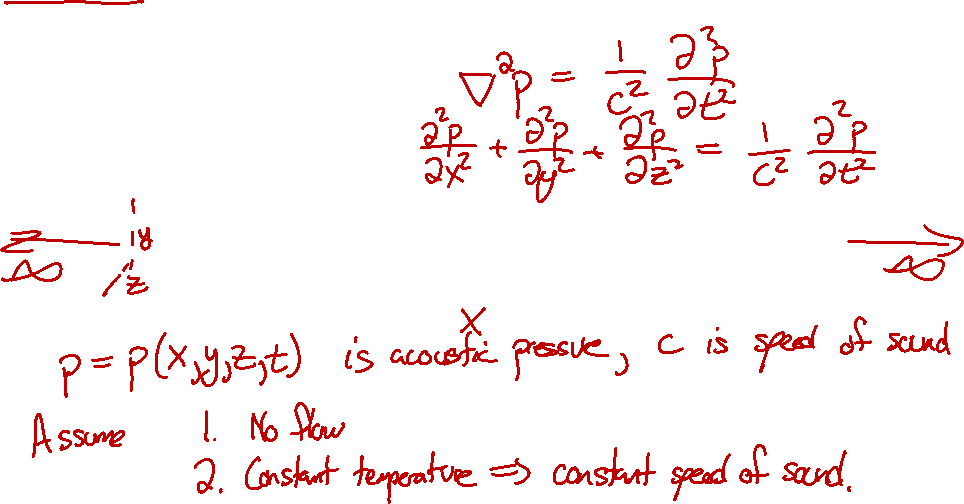 ∇²p = 1/c² ∂²p/∂t²
∂²p/∂x² + ∂²p/∂y² + ∂²p/∂z² = 1/c² ∂²p/∂t²
y
∞ ∞
z
x
p = p(x,y,z,t) is acoustic pressure, c is speed of sound
Assume 1. No flow
2. Constant temperature ⇒ constant speed of sound.